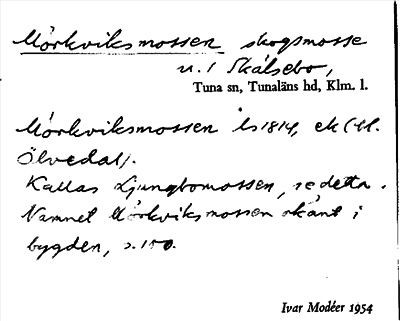 Mörkviksmossen skogsmosse
n. / Skälsebo,
Tuna sn, Tunaläns hd, Klm. l.
Mörkviksmossen ls 1814, ek (H.
Ölvedal).
Kallas Ljungbomossen, se detta.
Namnet Mörkviksmossen okänt i
bygden, s. 150.
Ivar Modéer 1954